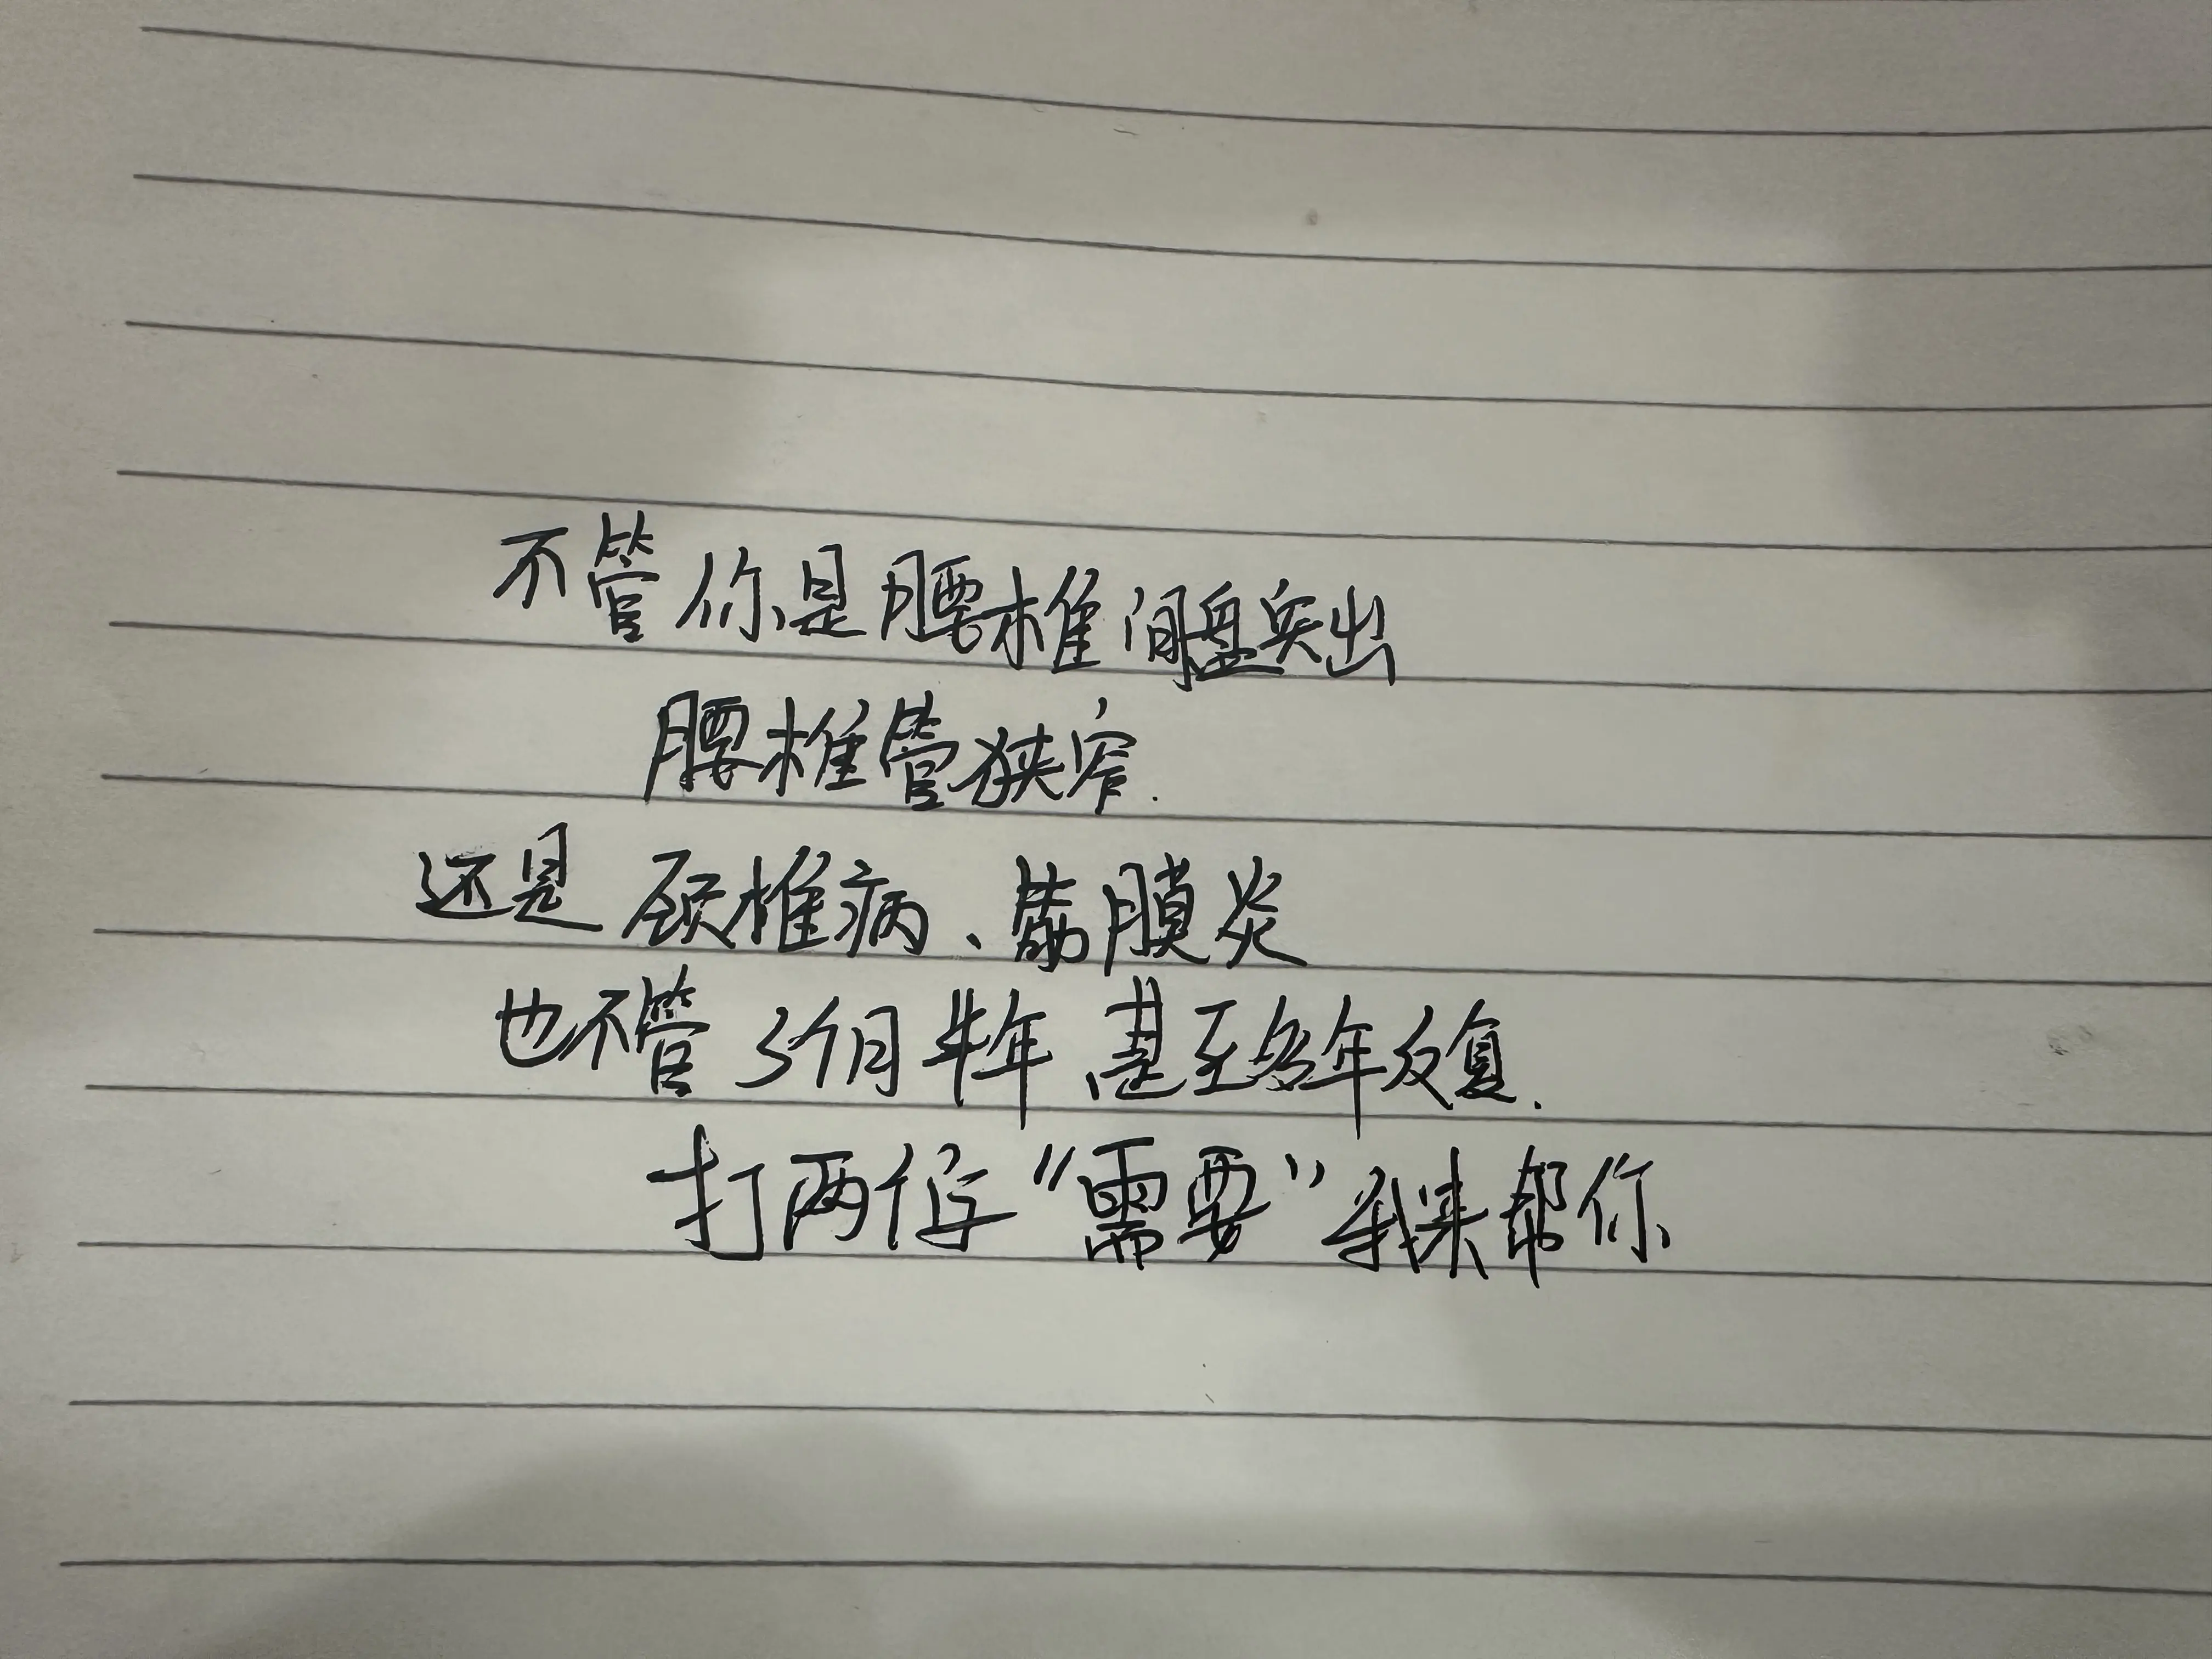 不管你是腰椎间盘突出
腰椎管狭窄.
还是颈椎病、筋膜炎
也不管3个月半年甚至多年反复.
打两个字“需要”我来帮你